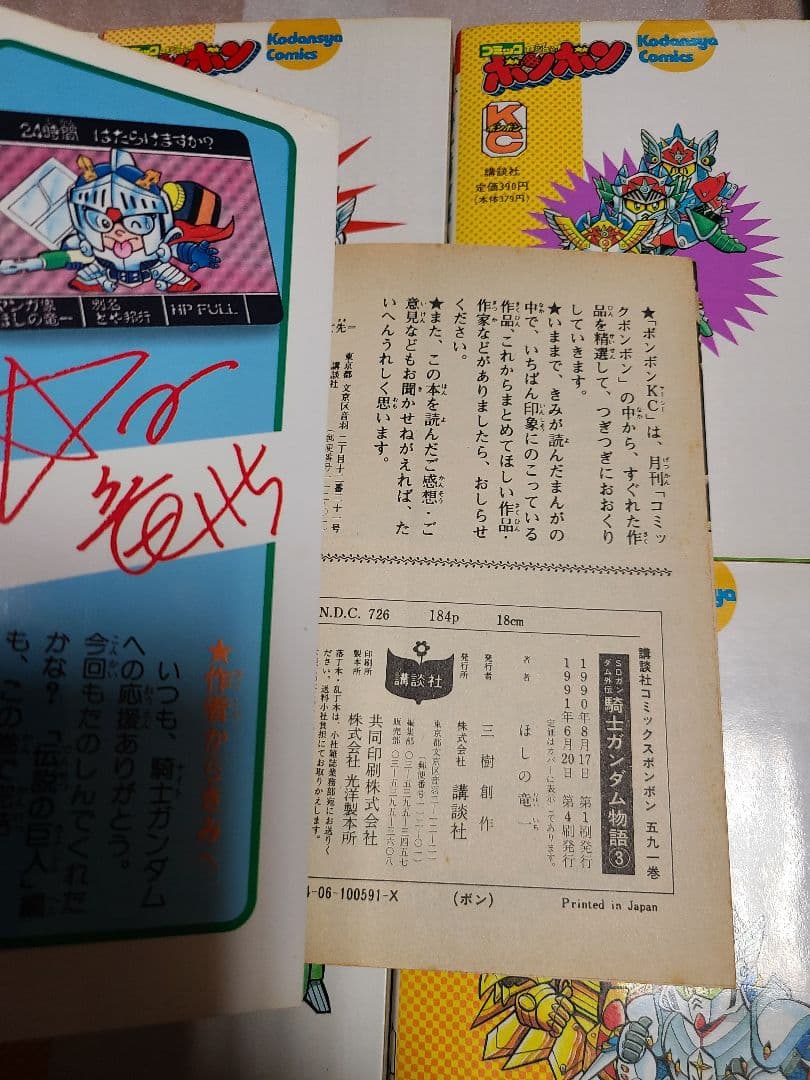 コミック
ボンボン
Kodansya
Comics
コミック
ボンボン
Kodansya
Comics
KC
ボンボン
講談社
定価390円
(本体379円)
24時間 はたらけますか?
マンガ家
ほしの竜一
別名
とや邦行
HP FULL
★作者からきみへ
いつも、騎士ガンダム
への応援ありがとう。
今回もたのしんでくれた
かな?「伝説の巨人」編
も、この
★「ボンボンKC」は、月刊「コミッ
クボンボン」の中から、すぐれた作
品を精選して、つぎつぎにおおくり
していきます。
★いままで、きみが読んだまんがの
中で、いちばん印象にのこっている
作品、これからまとめてほしい作品・
作家などがありましたら、おしらせ
ください。
★また、この本を読んだご感想・ご
意見などもお聞かせねがえれば、た
いへんうれしく思います。
先=
東京都 文京区音羽 二丁目十二番二十一号
講談社
N.D.C. 726 184p 18cm
講談社コミックスボンボン 五九一巻
SDガンダム外伝 騎士ガンダム物語③
1990年8月17日 第1刷発行
1991年6月20日 第4刷発行
定価はカバーに表示してあります。
著者 ほしの竜一
発行者 三樹創作
発行所 株式会社 講談社
東京都文京区音羽二-一二-二一
編集部 〇三-五三九五-三四五七
販売部 〇三-五三九五-三六〇八
講談社
印刷所 共同印刷株式会社
製本所 株式会社 光洋製本所
落丁本・乱丁本は、小社雑誌業務部宛にお送りく
ださい。送料小社負担にてお取りかえします。
4-06-100591-X (ボン) Printed in Japan
Kodansya
Comics
nsya